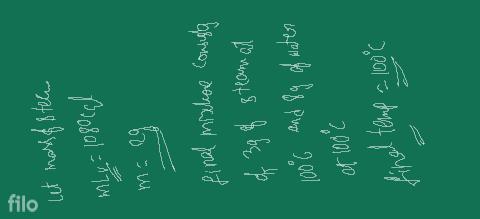 let mass of steam
mLv = 1080 cal
m = 2g
final mixture consists
of 3g of steam at
100°C and 8g of water
at 100°C
final temp = 100°C
filo